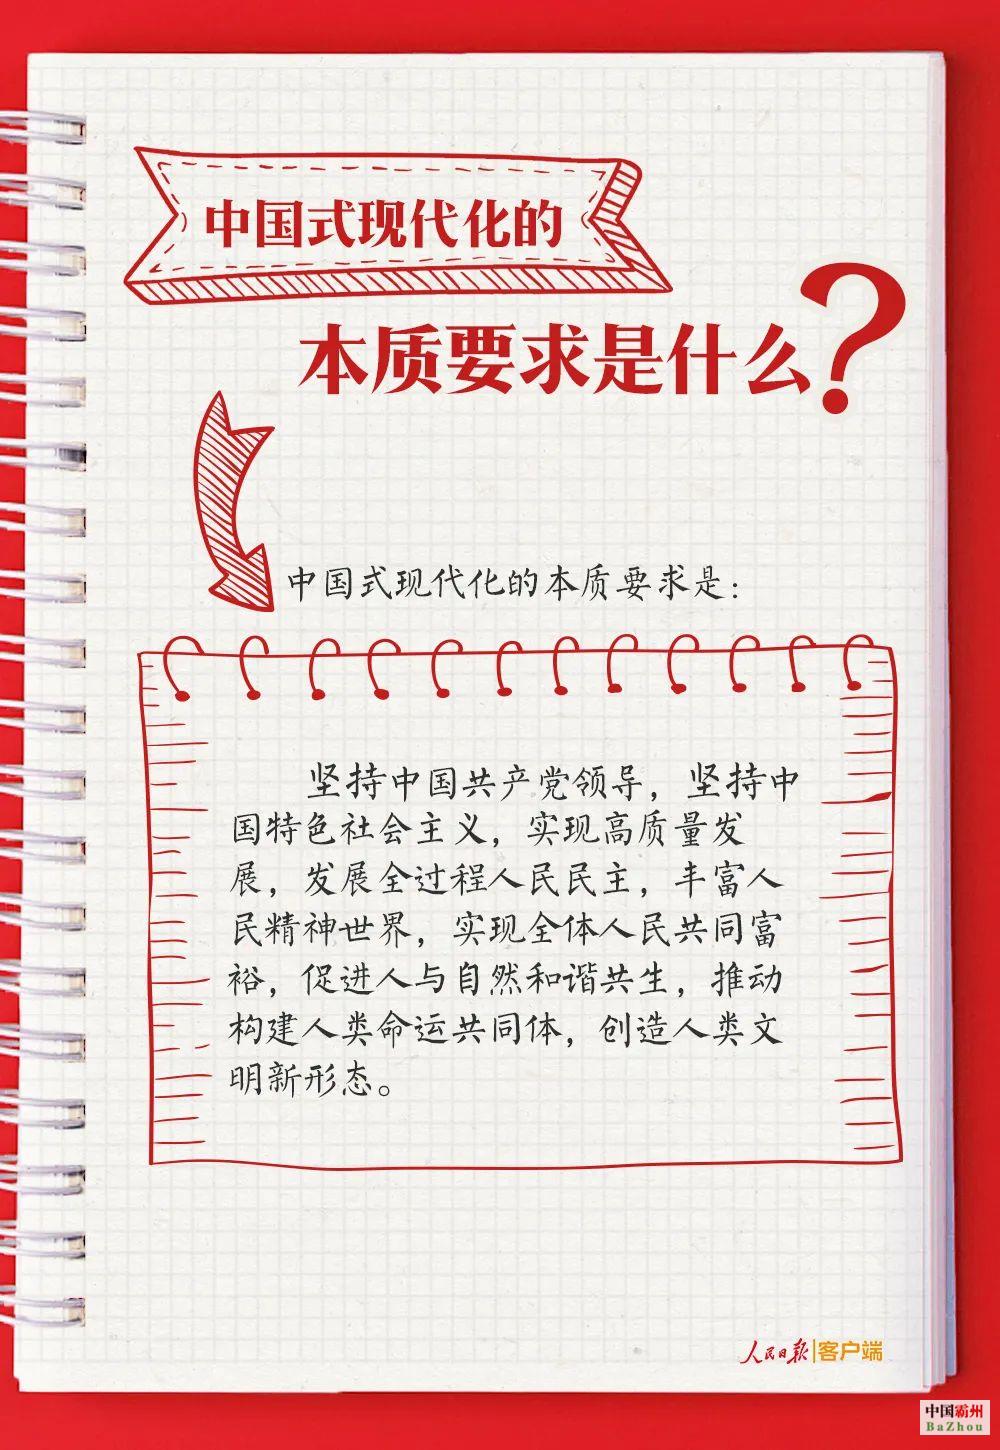 中国式现代化的
本质要求是什么?
中国式现代化的本质要求是:
坚持中国共产党领导，坚持中
国特色社会主义，实现高质量发
展，发展全过程人民民主，丰富人
民精神世界，实现全体人民共同富
裕，促进人与自然和谐共生，推动
构建人类命运共同体，创造人类文
明新形态。
人民日报|客户端
中国霸州
BaZhou